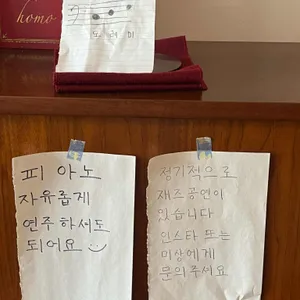 homo
도 레 미
피 아 노
자유롭게
연주 하셔도
되어요
정기적으로
재즈공연이
있습니다
인스타 또는
이상에게
문의주세요